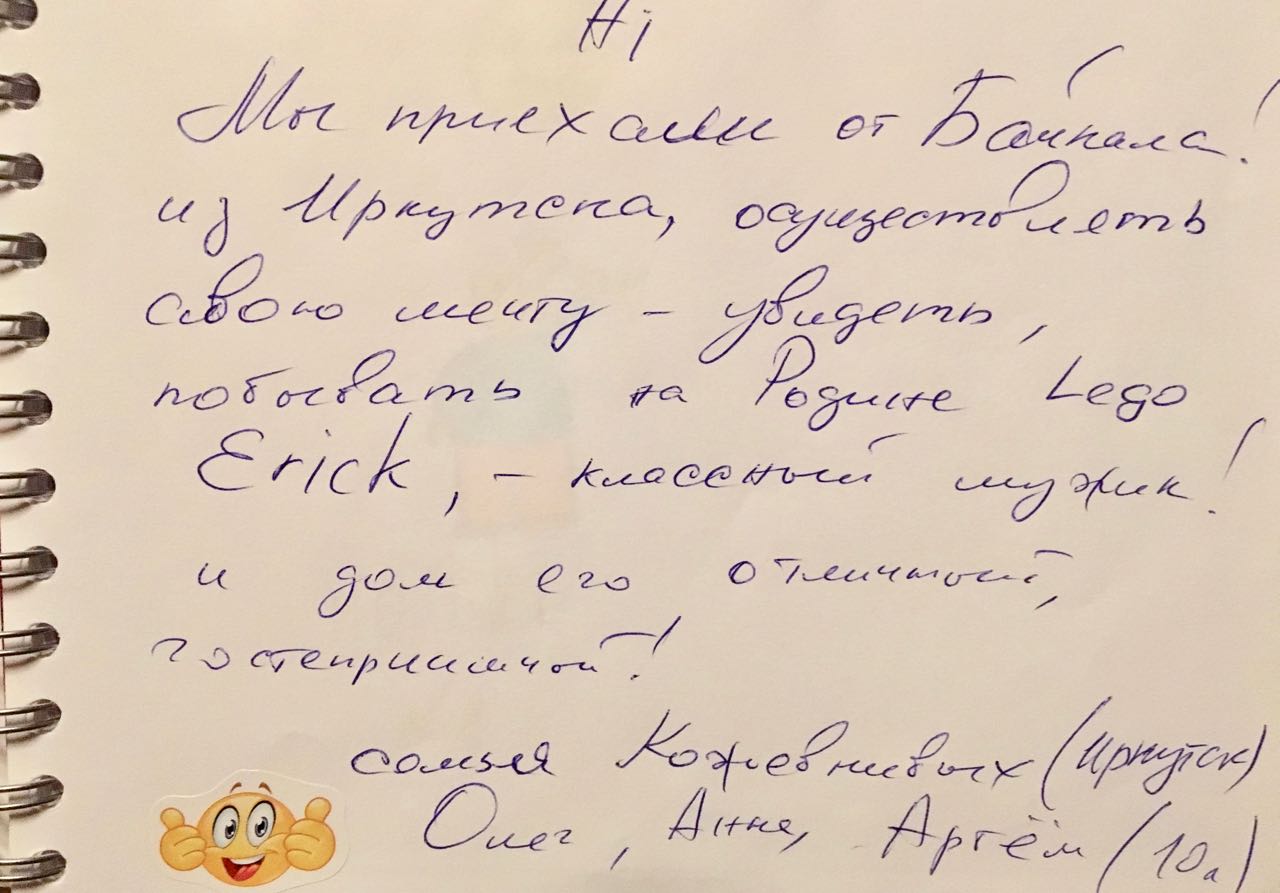 Hi
Мы приехали от Байкала!
из Иркутска, осуществлять
свою мечту – увидеть,
побывать на Родине Lego
Erick, – классный мужик!
и дом его отличный,
гостеприимной!
семья Кожевниковых (Иркутск)
Олег, Анна, Артём (10л